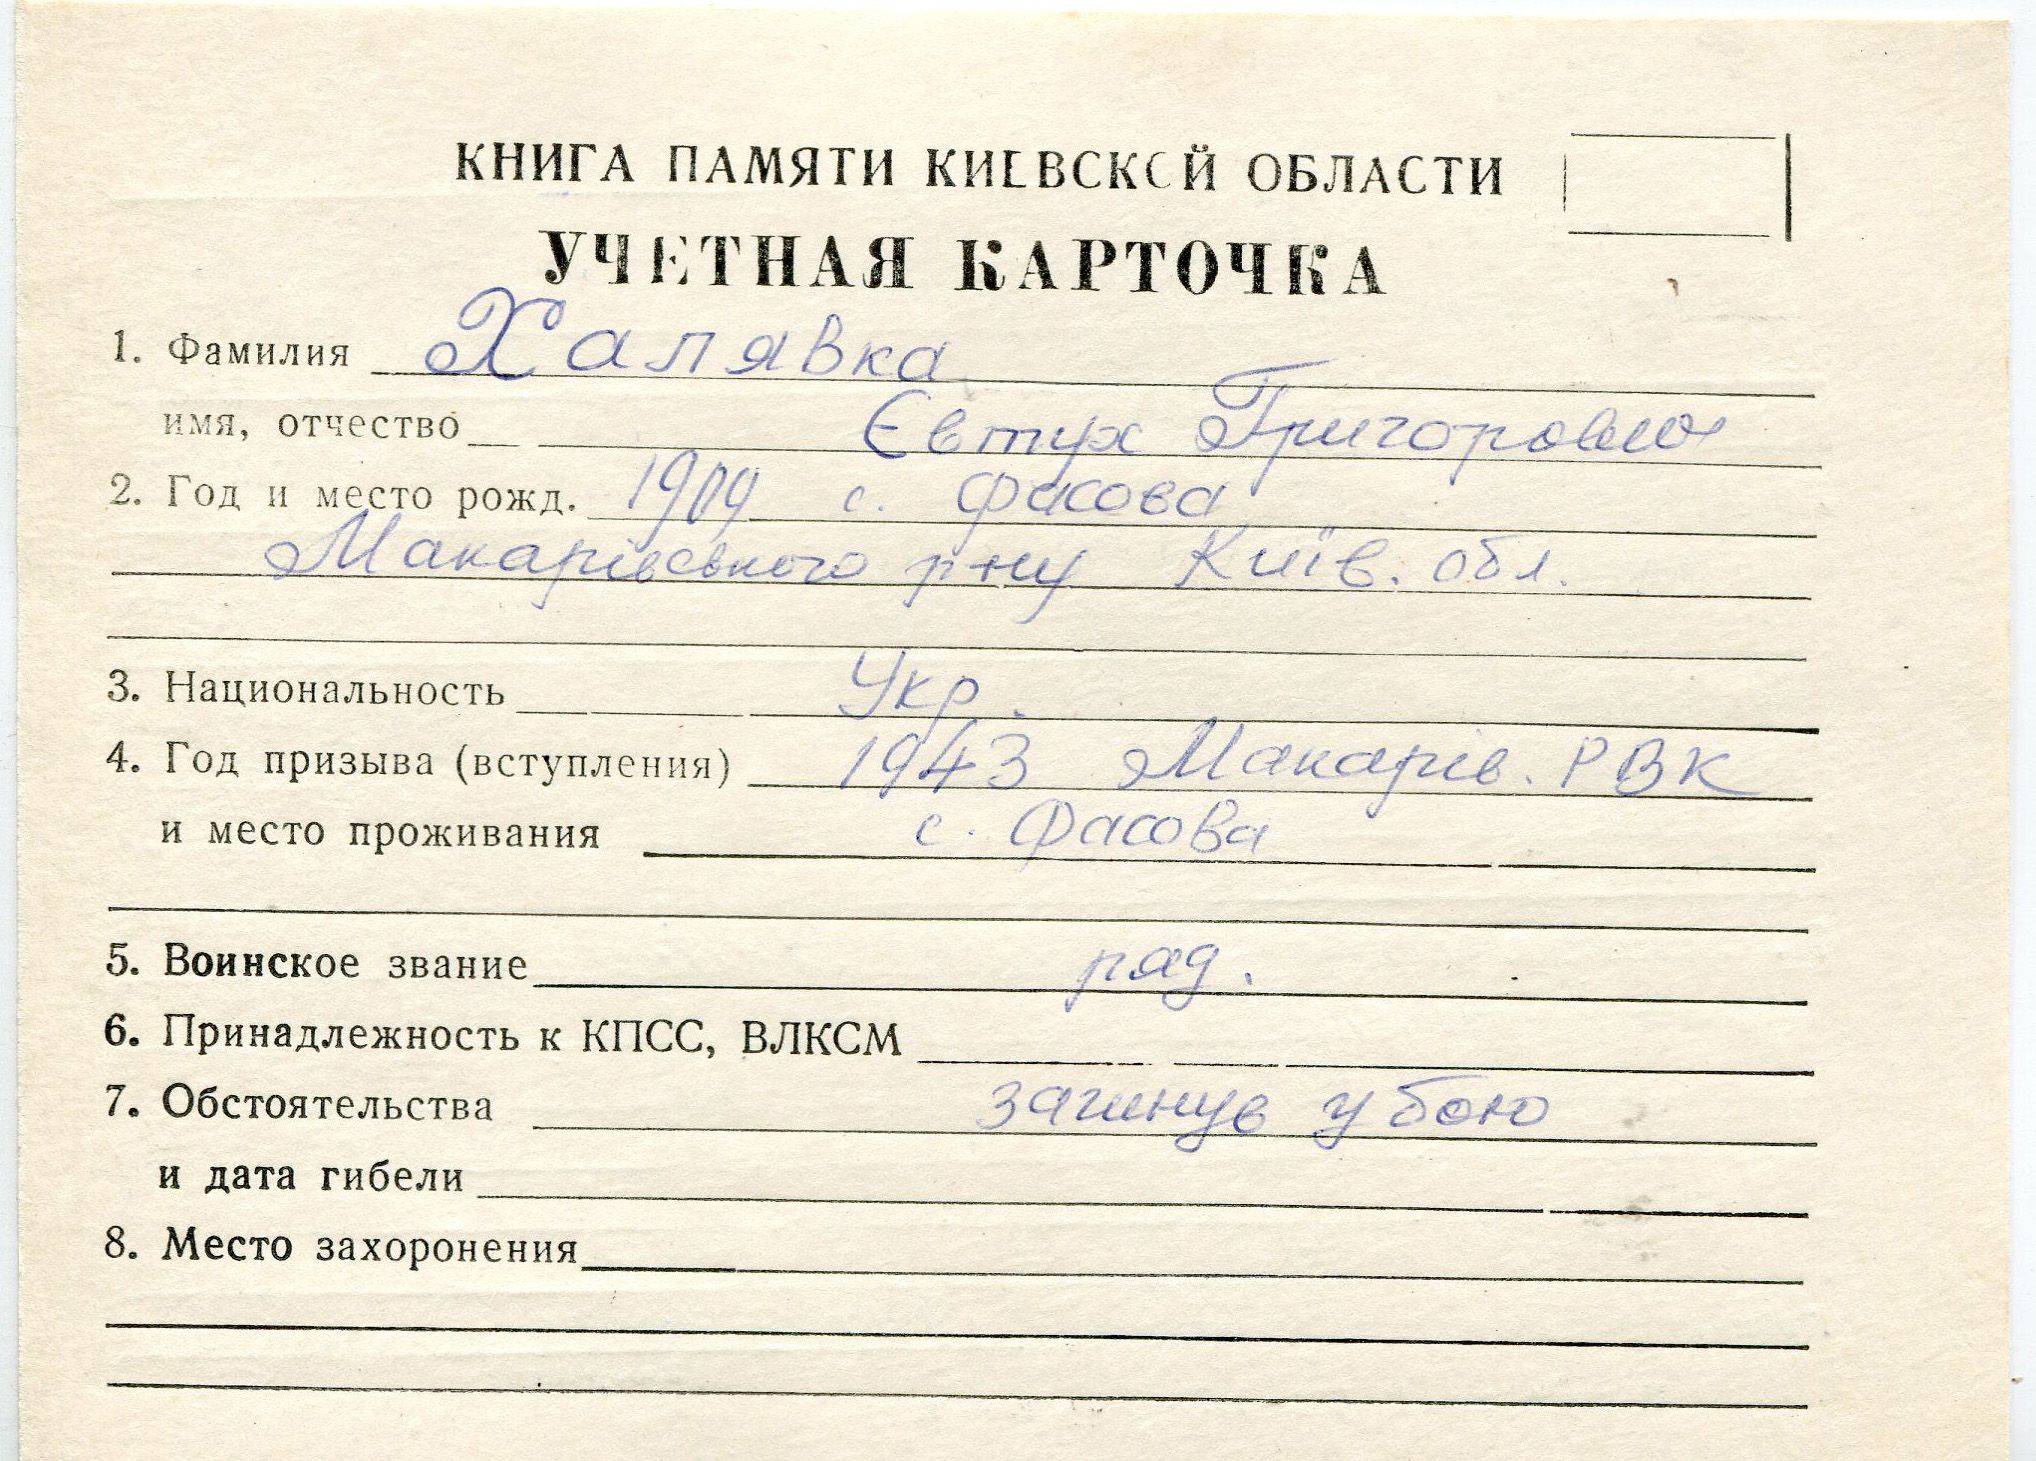 КНИГА ПАМЯТИ КИЕВСКОЙ ОБЛАСТИ
УЧЕТНАЯ КАРТОЧКА
1. Фамилия Халявка
имя, отчество Євтух Григорович
2. Год и место рожд. 1909 с. Фасова
Макарівського р-ну Київ. обл.
3. Национальность Укр.
4. Год призыва (вступления) 1943 Макарів. РВК
и место проживания с. Фасова
5. Воинское звание ряд.
6. Принадлежность к КПСС, ВЛКСМ
7. Обстоятельства загинув у бою
и дата гибели
8. Место захоронения